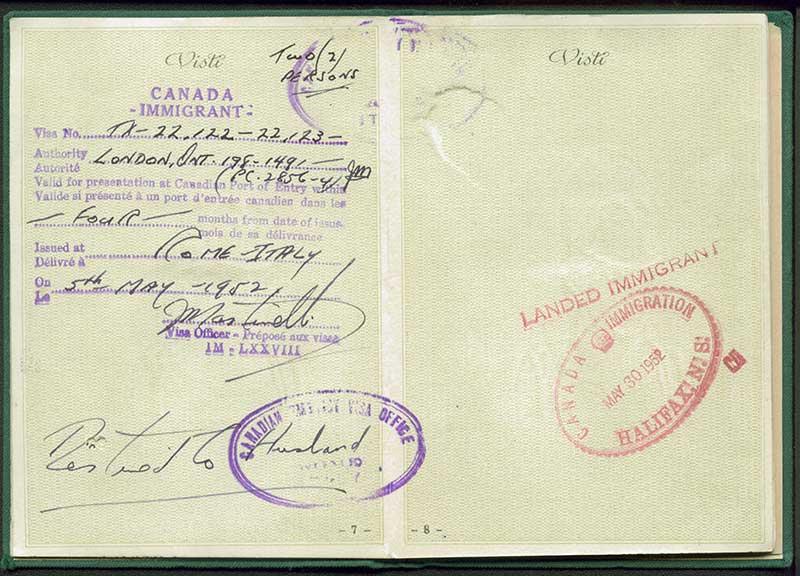 Visti
Two (2)
PERSONS
CANADA
- IMMIGRANT -
Visa No. TX-22,122-22,123-
Authority LONDON, ONT. 198-1491-
Autorité (PC-2856-4)
Valid for presentation at Canadian Port of Entry within
Valide si présenté à un port d'entrée canadien dans les
- FOUR - months from date of issue
mois de sa délivrance
Issued at ROME-ITALY
Délivré à
On 5th MAY - 1952.
Le
Visa Officer - Préposé aux visas
IM - LXXVIII
CANADIAN VISA OFFICE
Husband
- 7 -
Visti
LANDED IMMIGRANT
CANADA IMMIGRATION
MAY 30 1952
HALIFAX, N. S.
- 8 -